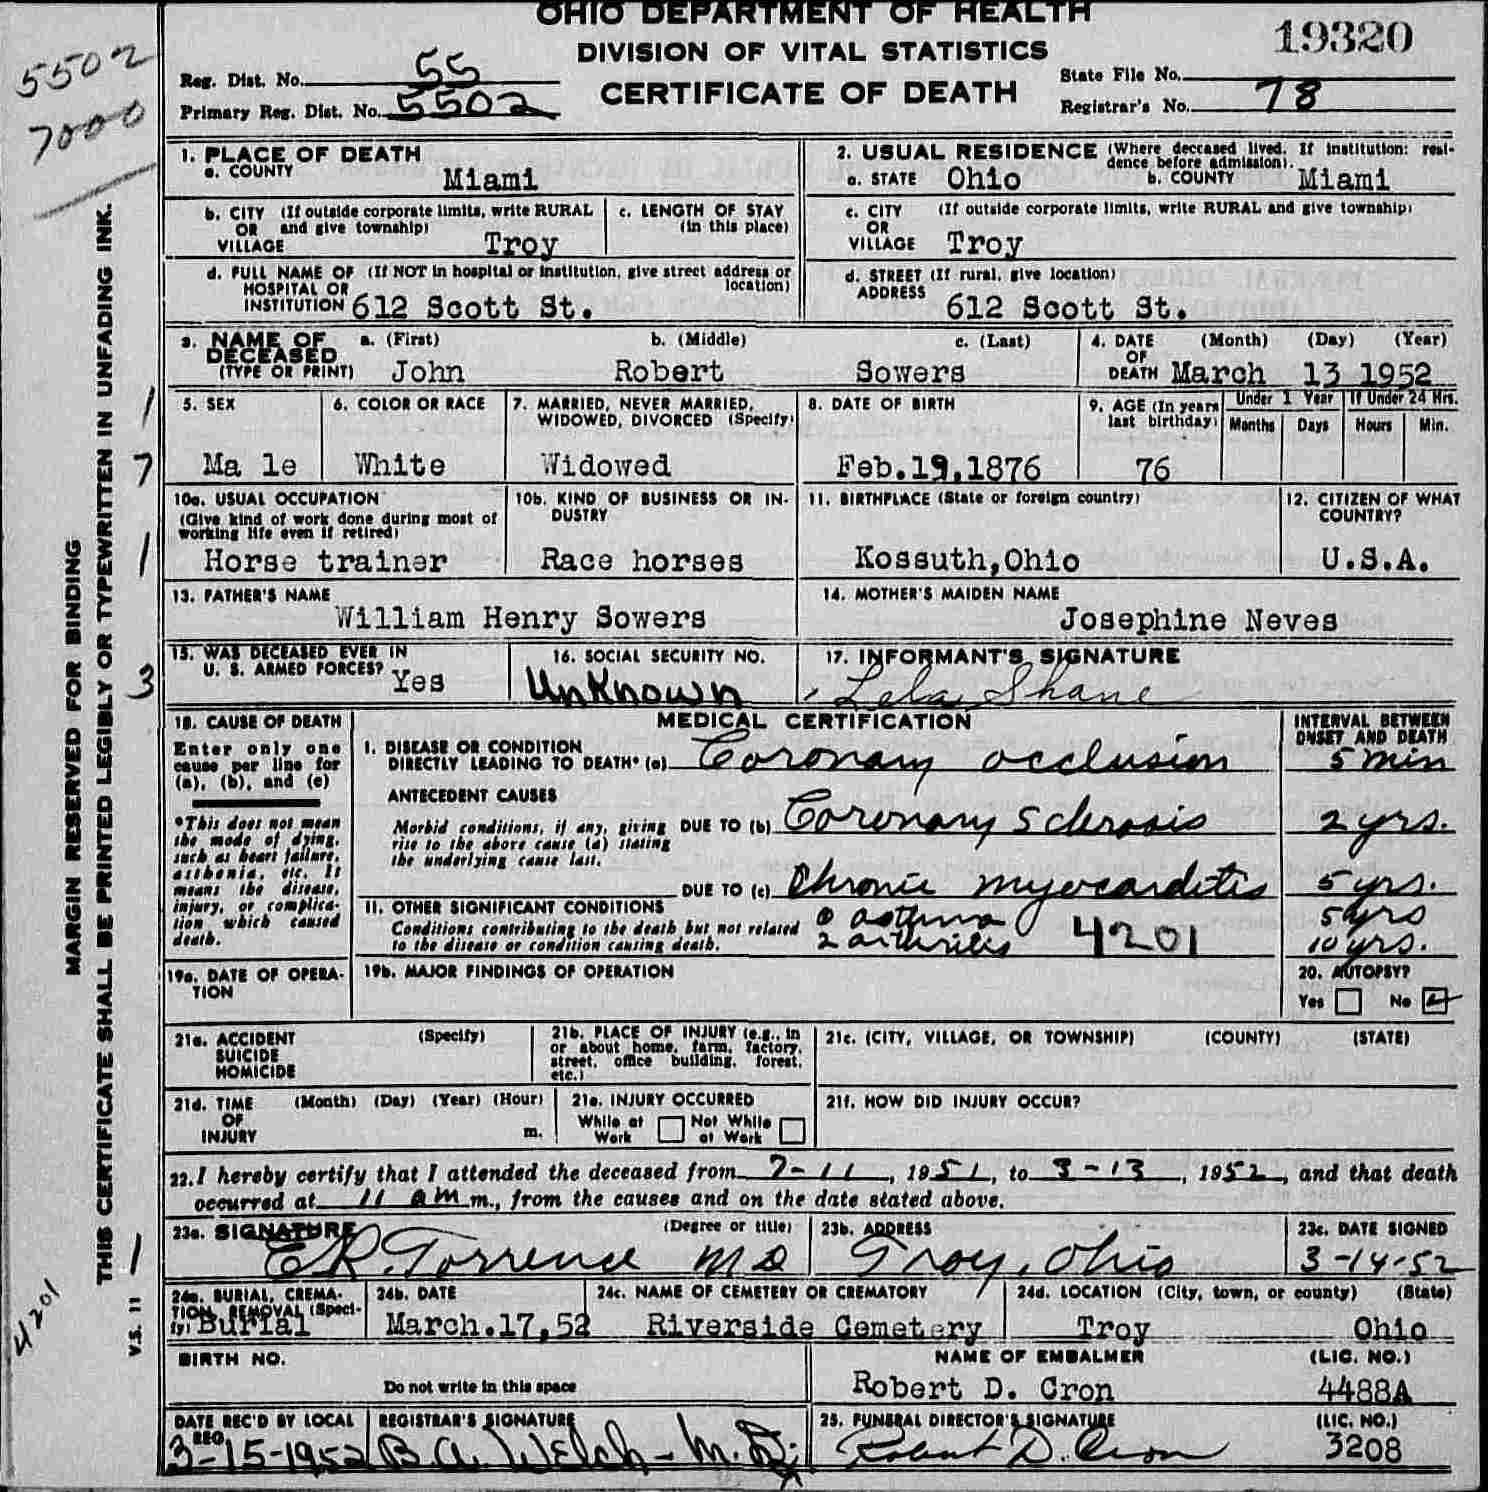 OHIO DEPARTMENT OF HEALTH
DIVISION OF VITAL STATISTICS
CERTIFICATE OF DEATH
19320
5502
7000
Reg. Dist. No. 55
Primary Reg. Dist. No. 5502
State File No.
Registrar's No. 78
MARGIN RESERVED FOR BINDING
THIS CERTIFICATE SHALL BE PRINTED LEGIBLY OR TYPEWRITTEN IN UNFADING INK.
V.S. 11
4201
1
7
1
3
1
1. PLACE OF DEATH
a. COUNTY Miami
b. CITY (If outside corporate limits, write RURAL
OR and give township)
VILLAGE Troy
c. LENGTH OF STAY
(in this place)
d. FULL NAME OF (If NOT in hospital or institution, give street address or
HOSPITAL OR location)
INSTITUTION 612 Scott St.
2. USUAL RESIDENCE (Where deceased lived. If institution: resi-
dence before admission).
a. STATE Ohio b. COUNTY Miami
c. CITY (If outside corporate limits, write RURAL and give township)
OR
VILLAGE Troy
d. STREET (If rural, give location)
ADDRESS 612 Scott St.
3. NAME OF DECEASED (TYPE OR PRINT)
a. (First) b. (Middle) c. (Last)
John Robert Sowers
4. DATE OF DEATH (Month) (Day) (Year)
March 13 1952
5. SEX
Ma le
6. COLOR OR RACE
White
7. MARRIED, NEVER MARRIED,
WIDOWED, DIVORCED (Specify)
Widowed
8. DATE OF BIRTH
Feb.19,1876
9. AGE (In years
last birthday)
76
Under 1 Year If Under 24 Hrs.
Months Days Hours Min.
10a. USUAL OCCUPATION
(Give kind of work done during most of
working life even if retired)
Horse trainer
10b. KIND OF BUSINESS OR IN-
DUSTRY
Race horses
11. BIRTHPLACE (State or foreign country)
Kossuth,Ohio
12. CITIZEN OF WHAT
COUNTRY?
U.S.A.
13. FATHER'S NAME
William Henry Sowers
14. MOTHER'S MAIDEN NAME
Josephine Neves
15. WAS DECEASED EVER IN
U. S. ARMED FORCES? Yes
16. SOCIAL SECURITY NO.
Unknown
17. INFORMANT'S SIGNATURE
Lela Shane
18. CAUSE OF DEATH
Enter only one
cause per line for
(a), (b), and (c)
*This does not mean
the mode of dying,
such as heart failure,
asthenia, etc. It
means the disease,
injury, or complica-
tion which caused
death.
MEDICAL CERTIFICATION
INTERVAL BETWEEN
ONSET AND DEATH
I. DISEASE OR CONDITION
DIRECTLY LEADING TO DEATH* (a) Coronary occlusion 5 min
ANTECEDENT CAUSES
Morbid conditions, if any, giving DUE TO (b) Coronary Sclerosis 2 yrs.
rise to the above cause (a) stating
the underlying cause last.
DUE TO (c) Chronic myocarditis 5 yrs.
II. OTHER SIGNIFICANT CONDITIONS
Conditions contributing to the death but not related
to the disease or condition causing death.
asthma 5 yrs
2 arthritis 10 yrs.
4201
19a. DATE OF OPERA-
TION
19b. MAJOR FINDINGS OF OPERATION
20. AUTOPSY?
Yes No
21a. ACCIDENT (Specify)
SUICIDE
HOMICIDE
21b. PLACE OF INJURY (e.g., in
or about home, farm, factory,
street, office building, forest,
etc.)
21c. (CITY, VILLAGE, OR TOWNSHIP) (COUNTY) (STATE)
21d. TIME (Month) (Day) (Year) (Hour)
OF
INJURY m.
21e. INJURY OCCURRED
While at Not While
Work at Work
21f. HOW DID INJURY OCCUR?
22. I hereby certify that I attended the deceased from 7-11, 1951, to 3-13, 1952, and that death
occurred at 11 am m., from the causes and on the date stated above.
23a. SIGNATURE (Degree or title)
E.R. Torrence MD
23b. ADDRESS
Troy, Ohio
23c. DATE SIGNED
3-14-52
24a. BURIAL, CREMA-
TION, REMOVAL (Speci-
fy) Burial
24b. DATE
March.17,52
24c. NAME OF CEMETERY OR CREMATORY
Riverside Cemetery
24d. LOCATION (City, town, or county) (State)
Troy Ohio
BIRTH NO.
Do not write in this space
NAME OF EMBALMER (LIC. NO.)
Robert D. Cron 4488A
DATE REC'D BY LOCAL
REG.
3-15-1952
REGISTRAR'S SIGNATURE
B.A. Welch - M.D.
25. FUNERAL DIRECTOR'S SIGNATURE (LIC. NO.)
Robert D. Cron 3208